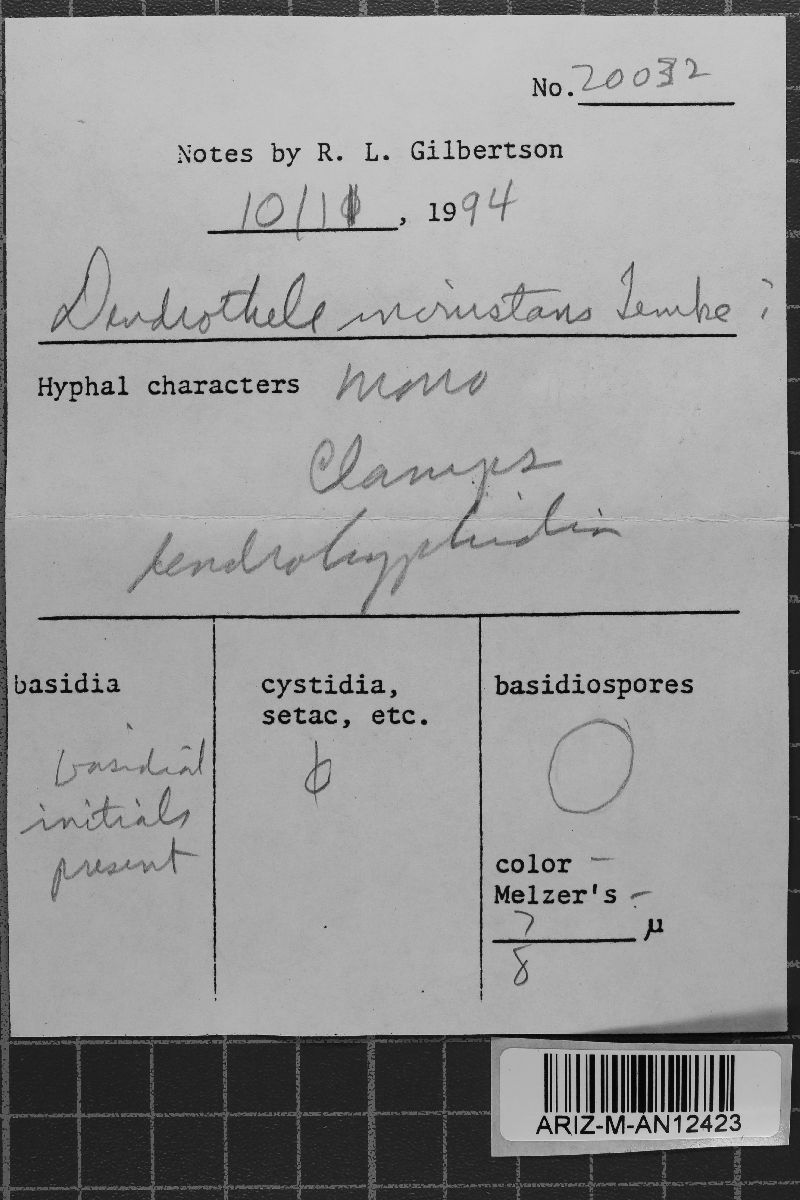 No. 20032
Notes by R. L. Gilbertson
10/1 , 1994
Dendrothele incrustans Lemke ?
Hyphal characters mono
Clamps
dendrohyphidia
basidia
basidial
initials
present
cystidia,
setac, etc.
ɸ
basidiospores
color –
Melzer's –
7 µ
8
ARIZ-M-AN12423